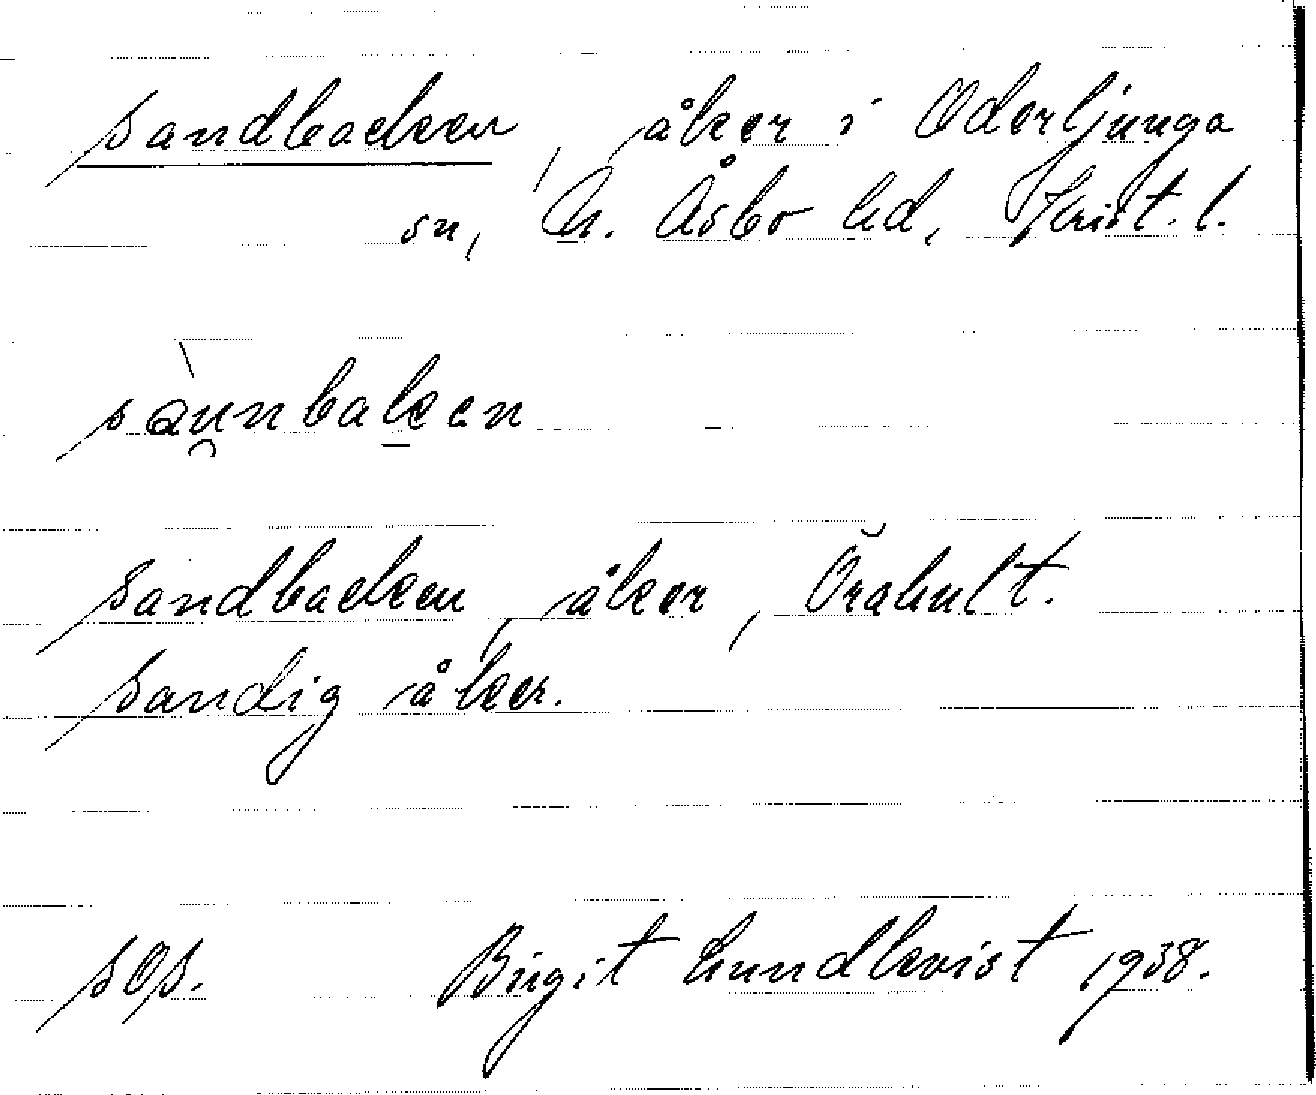 Sandbacken, åker i Oderljunga
sn, N. Åsbo hd, Krist. l.
sàu̯nbaken
Sandbacken, åker, Örahult.
Sandig åker.
SOS. Birgit Lundkvist 1938.